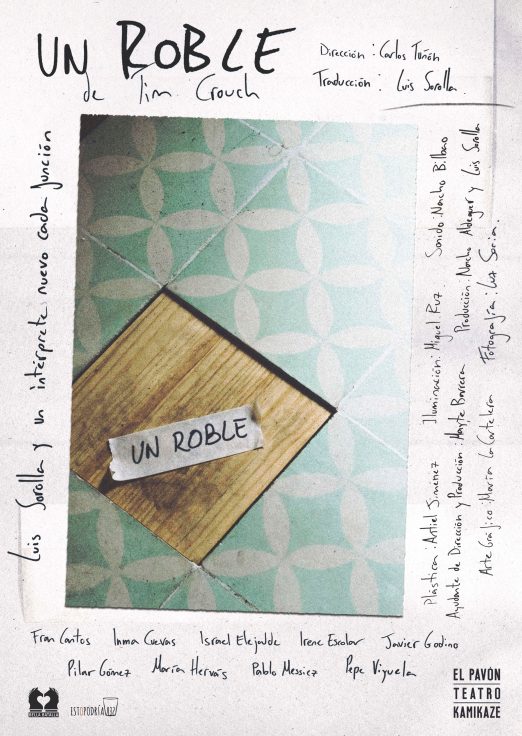 UN ROBLE
de Tim Crouch
Dirección: Carlos Tuñón
Traducción: Luis Sorolla.
Luis Sorolla y un intérprete nuevo cada función
UN ROBLE
Plástica: Antiel Jimenez Iluminación: Miguel Ruz Sonido: Nacho Bilbao
Ayudante de Dirección y Producción: Mayte Barrera Producción: Nacho Aldeguer y Luis Sorolla
Arte Gráfico: María La Cartelera Fotografía: Luz Soria.
Fran Cantos Inma Cuevas Israel Elejalde Irene Escolar Javier Godino
Pilar Gómez María Hervás Pablo Messiez Pepe Viyuela
BELLA BATALLA
ESTOPODRÍASER
EL PAVÓN
TEATRO
KAMIKAZE